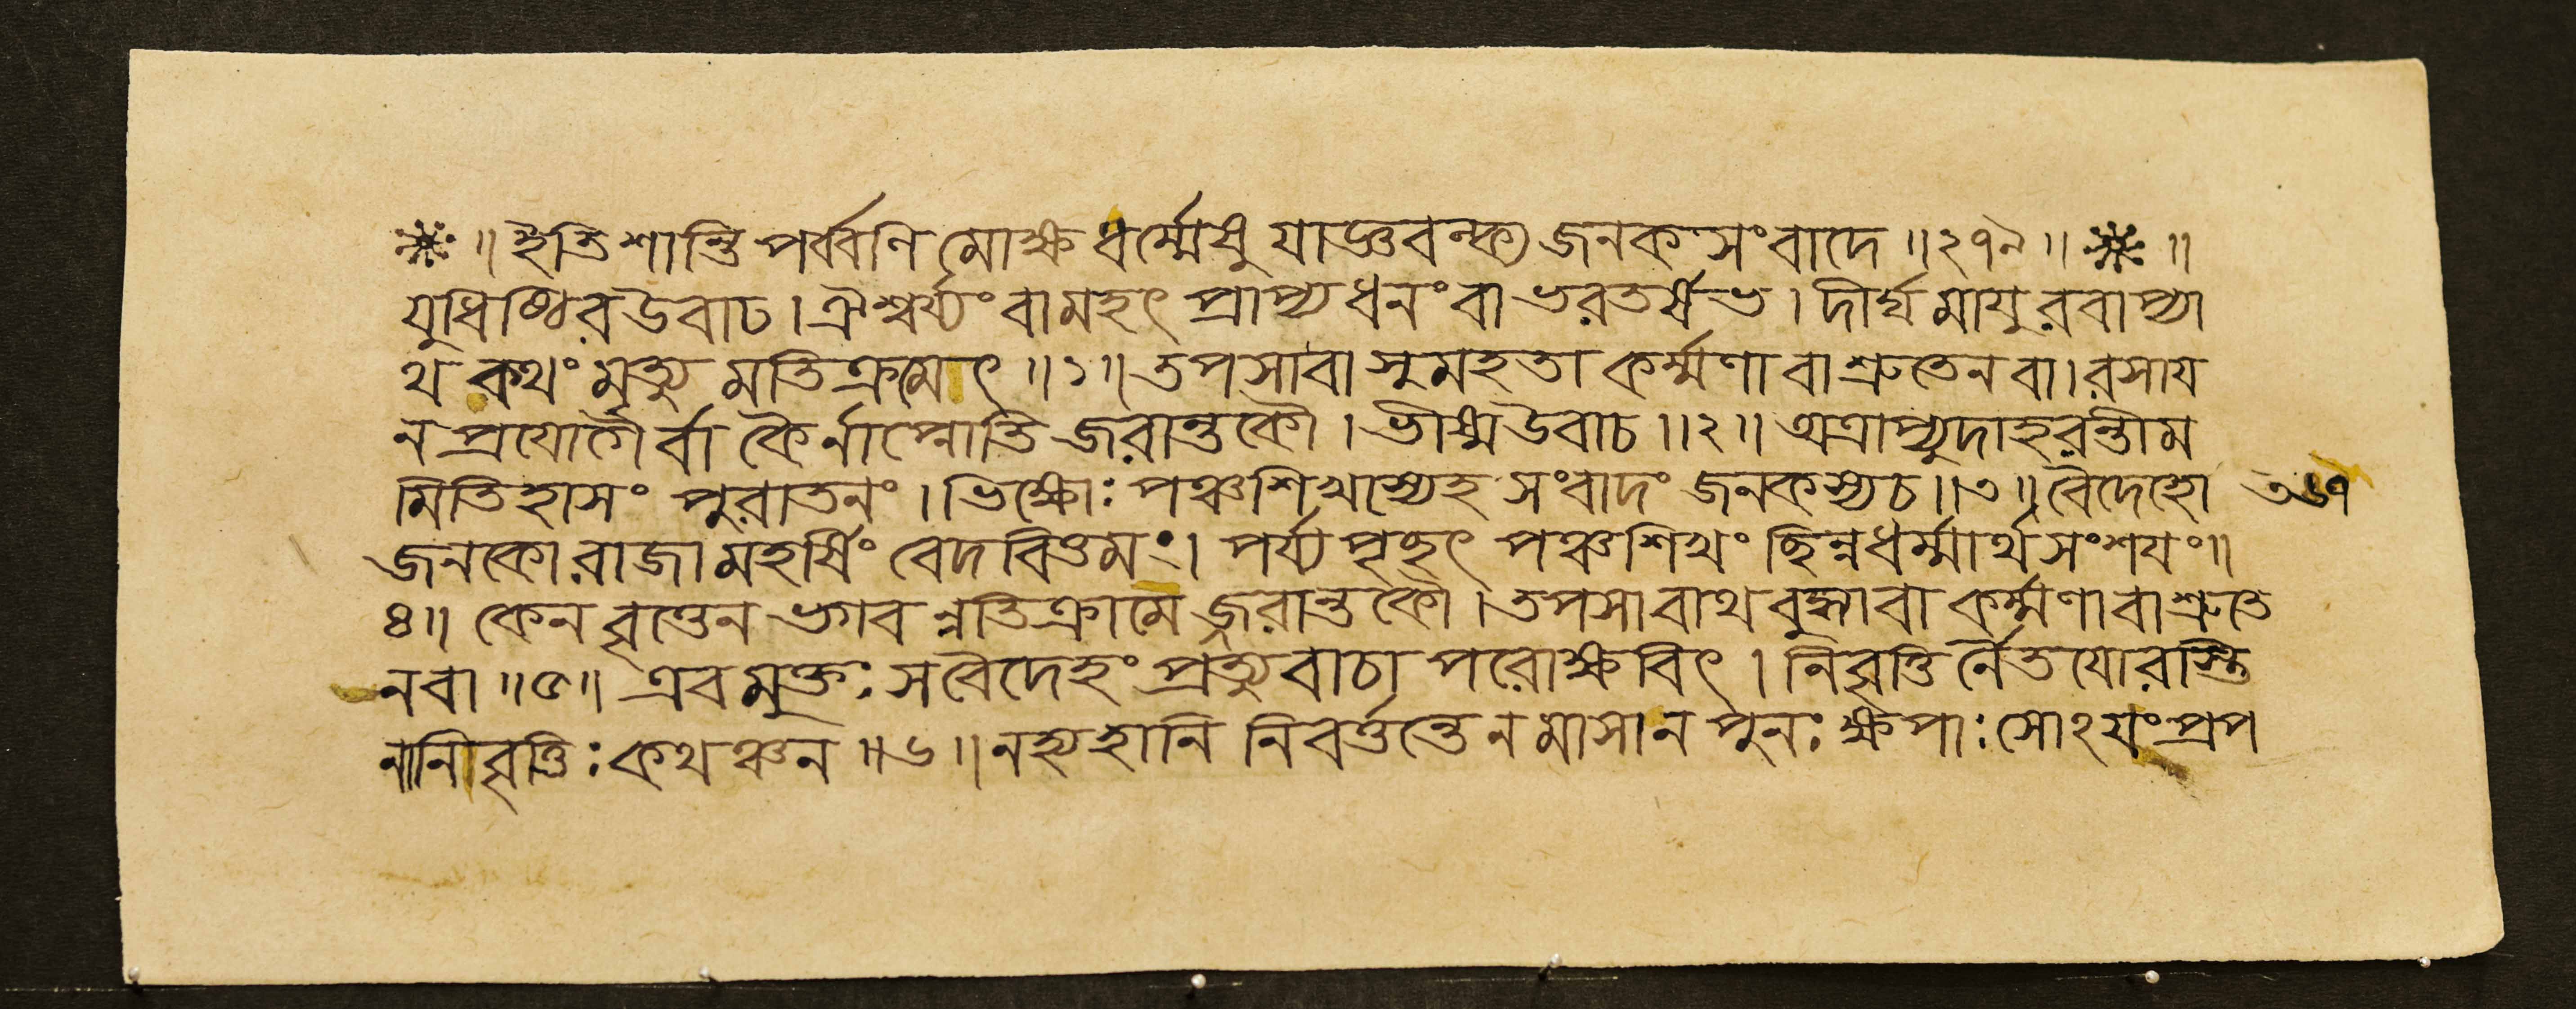 ❊ ॥ ইতি শান্তিপর্ব্বণি মোক্ষধর্ম্মেষু যাজ্ঞবল্ক্য জনক সংবাদে ॥ ২৭৯ ॥ ❊ ॥
যুধিষ্ঠির উবাচ । ঐশ্বর্য্যং বা মহৎ প্রাপ্য ধনং বা ভরতর্ষভ । দীর্ঘমায়ুরবাপ্যা
থ কথং মৃত্যুমতিক্রমেৎ ॥ ১ ॥ তপসা বা সুমহতা কর্ম্মণা বা শ্রুতেন বা । রসায
ন প্রযোগৈর্বা কৈর্নাপ্নোতি জরান্তকৌ । ভীষ্ম উবাচ ॥ ২ ॥ অত্রাপ্যুদাহরন্তীম
মিতিহাসং পুরাতনং । ভিক্ষোঃ পঞ্চশিখস্যেহ সংবাদং জনকস্য চ ॥ ৩ ॥ বৈদেহো
জনকো রাজা মহর্ষিং বেদবিত্তমং । পর্য্যপৃচ্ছৎ পঞ্চশিখং ছিন্নধর্ম্মার্থসংশযং ॥
৪ ॥ কেন বৃত্তেন ভগবন্নতিক্রামেজ্জরান্তকৌ । তপসা বাথ বুদ্ধ্যা বা কর্ম্মণা বা শ্রুতে
ন বা ॥ ৫ ॥ এবমুক্তঃ স বৈদেহং প্রত্যুবাচা পরোক্ষবিৎ । নিবৃত্তির্নৈতযোরস্তি
নানিবৃত্তিঃ কথঞ্চন ॥ ৬ ॥ ন হ্যহানি নিবর্ত্তন্তে ন মাসা ন পুনঃ ক্ষপাঃ সোঽযং প্রপ